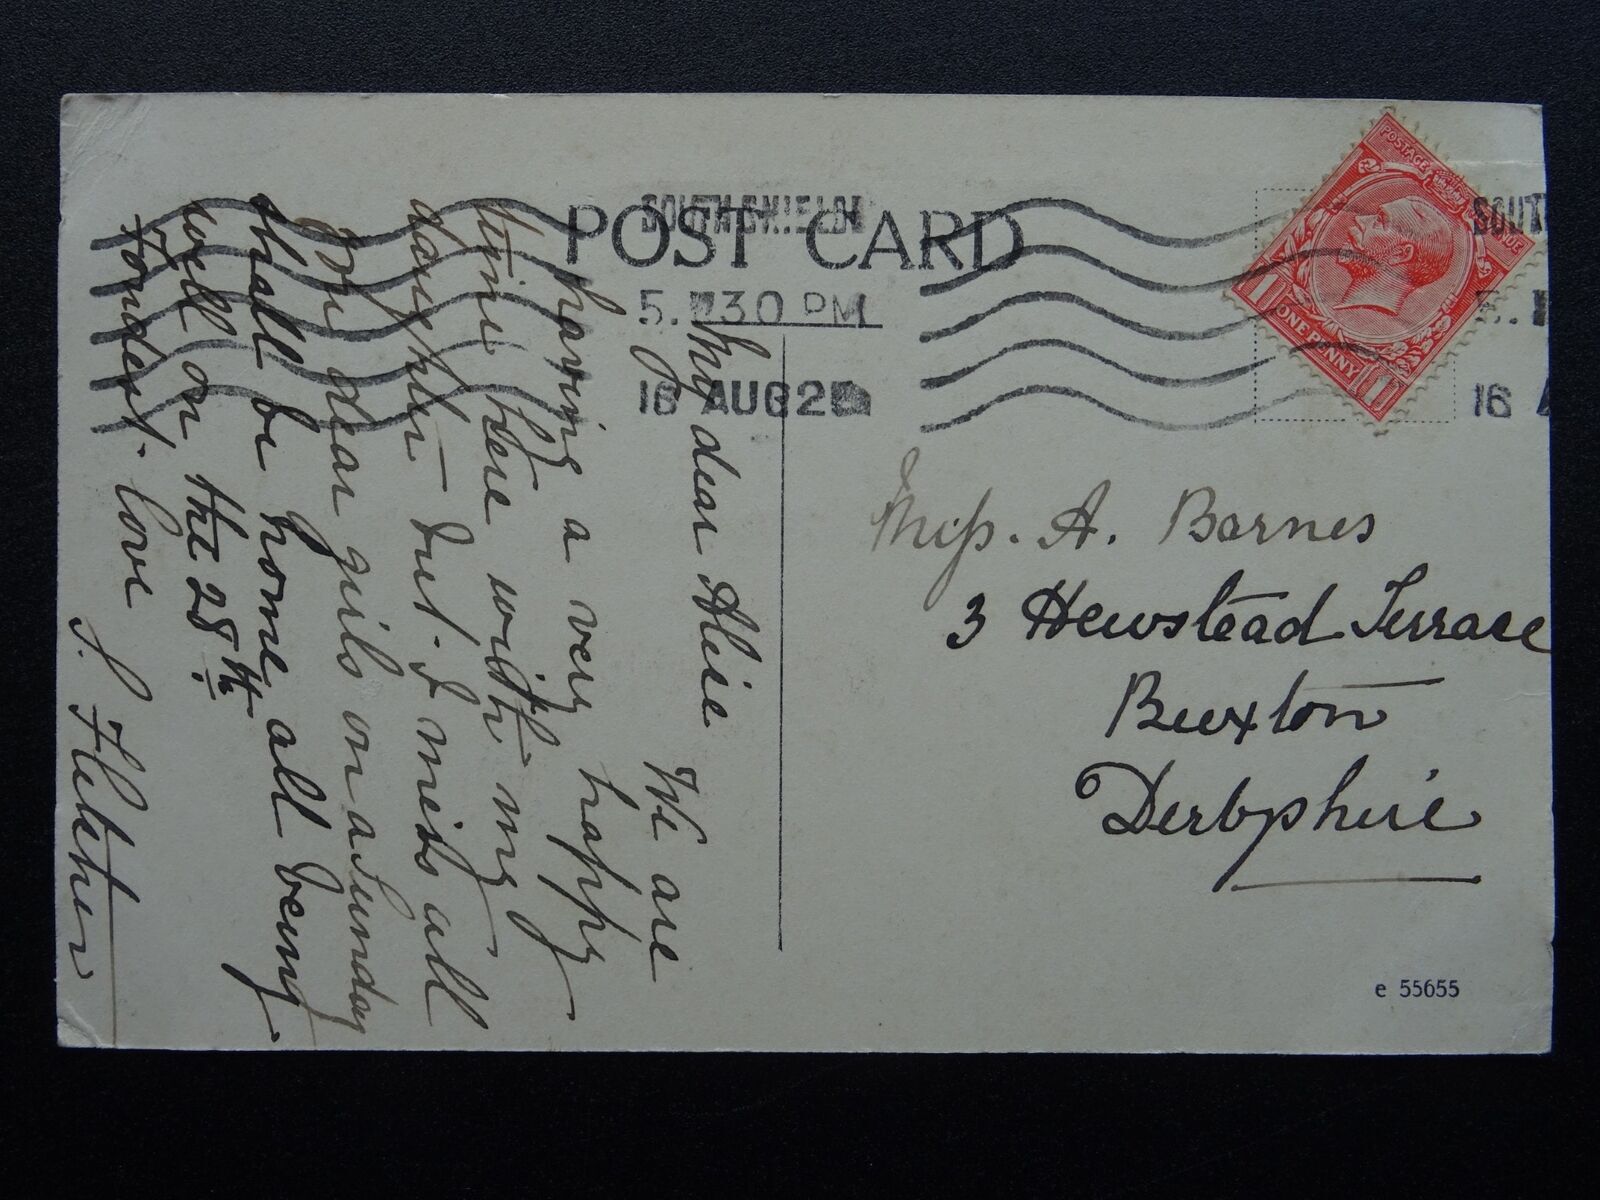 POST CARD
SOUTH SHIELDS
5. 30 PM
16 AUG 2
SOUT
5.
16 A
POSTAGE
ONE PENNY
1
1
My dear Alice
We are
having a very happy
time here with my
daughter but I miss all
my dear girls on a Sunday
shall be home all being
well on the 28th
Fondest love
S. Fletcher
Miss. A. Barnes
3 Hewstead Terrace
Buxton
Derbyshire
e 55655